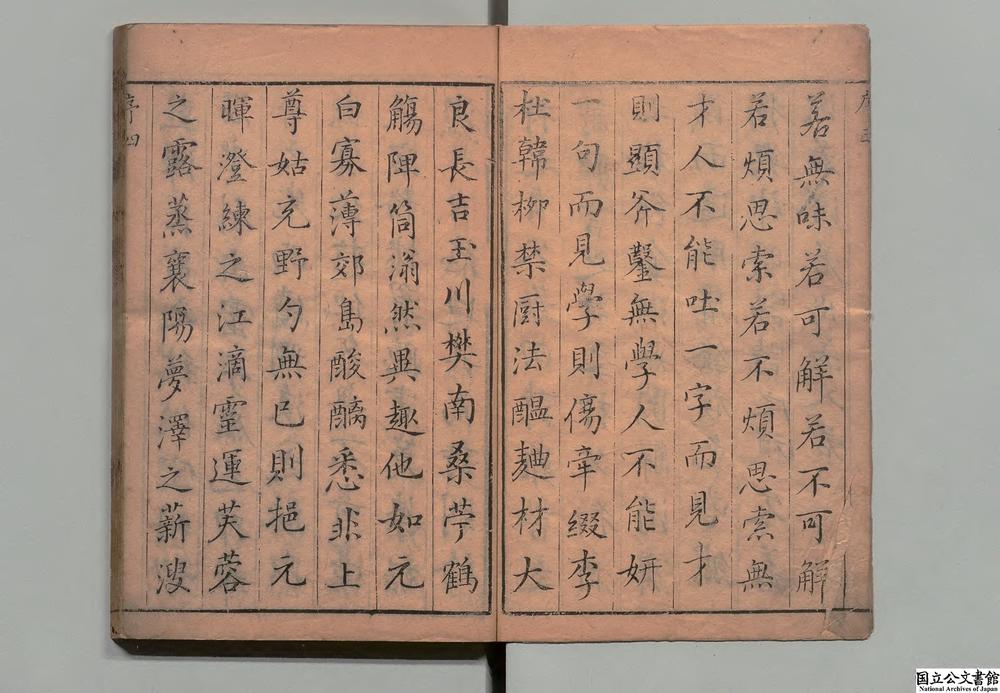 若無味若可解若不可解
若煩思索若不煩思索無
才人不能吐一字而見才
則顯斧鑿無學人不能妍
一句而見學則傷牽綴李
杜韓柳禁厨法醞麯材大
良長吉玉川樊南桑苧鶴
觴陴筒滃然異趣他如元
白寡薄郊島酸醨悉非上
尊姑充野勺無已則挹元
暉澄練之江滴霊運芙蓉
之露蒸襄陽夢澤之薪溲
序四
国立公文書館
National Archives of Japan